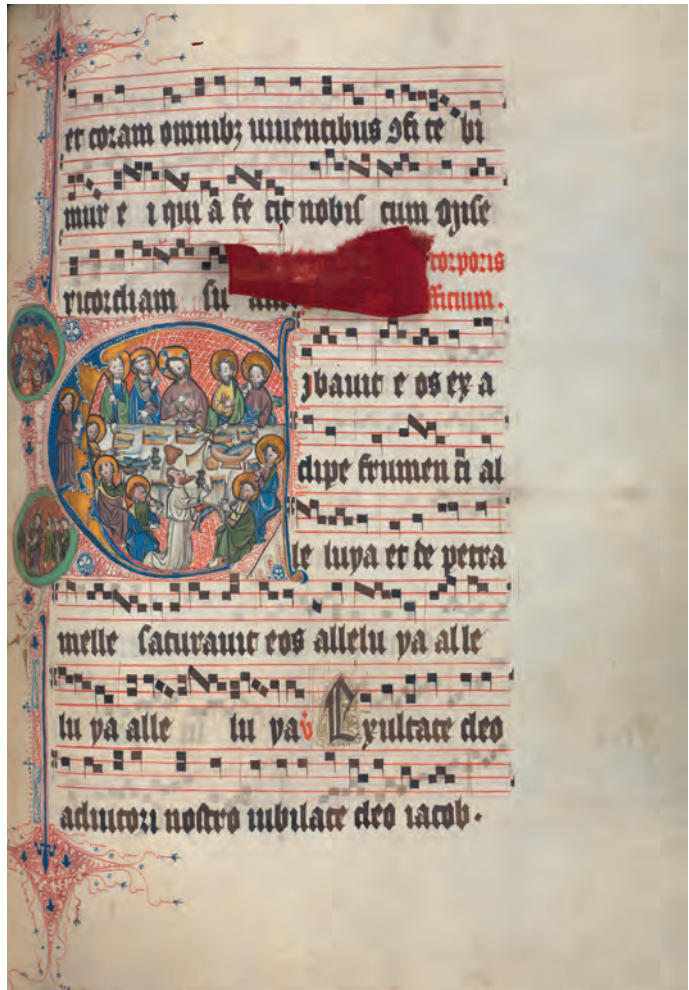 et coram omnibꝫ uiuentibus ꝯfi te bi
mur e i qui a fe cit nobis cum
ricordiam su
corporis
officium.
ibauit e os ex a
dipe frumen ti al
le luya et de petra
melle saturauit eos allelu ya alle
lu ya alle lu ya v Exultate deo
adiutori nostro iubilate deo iacob.